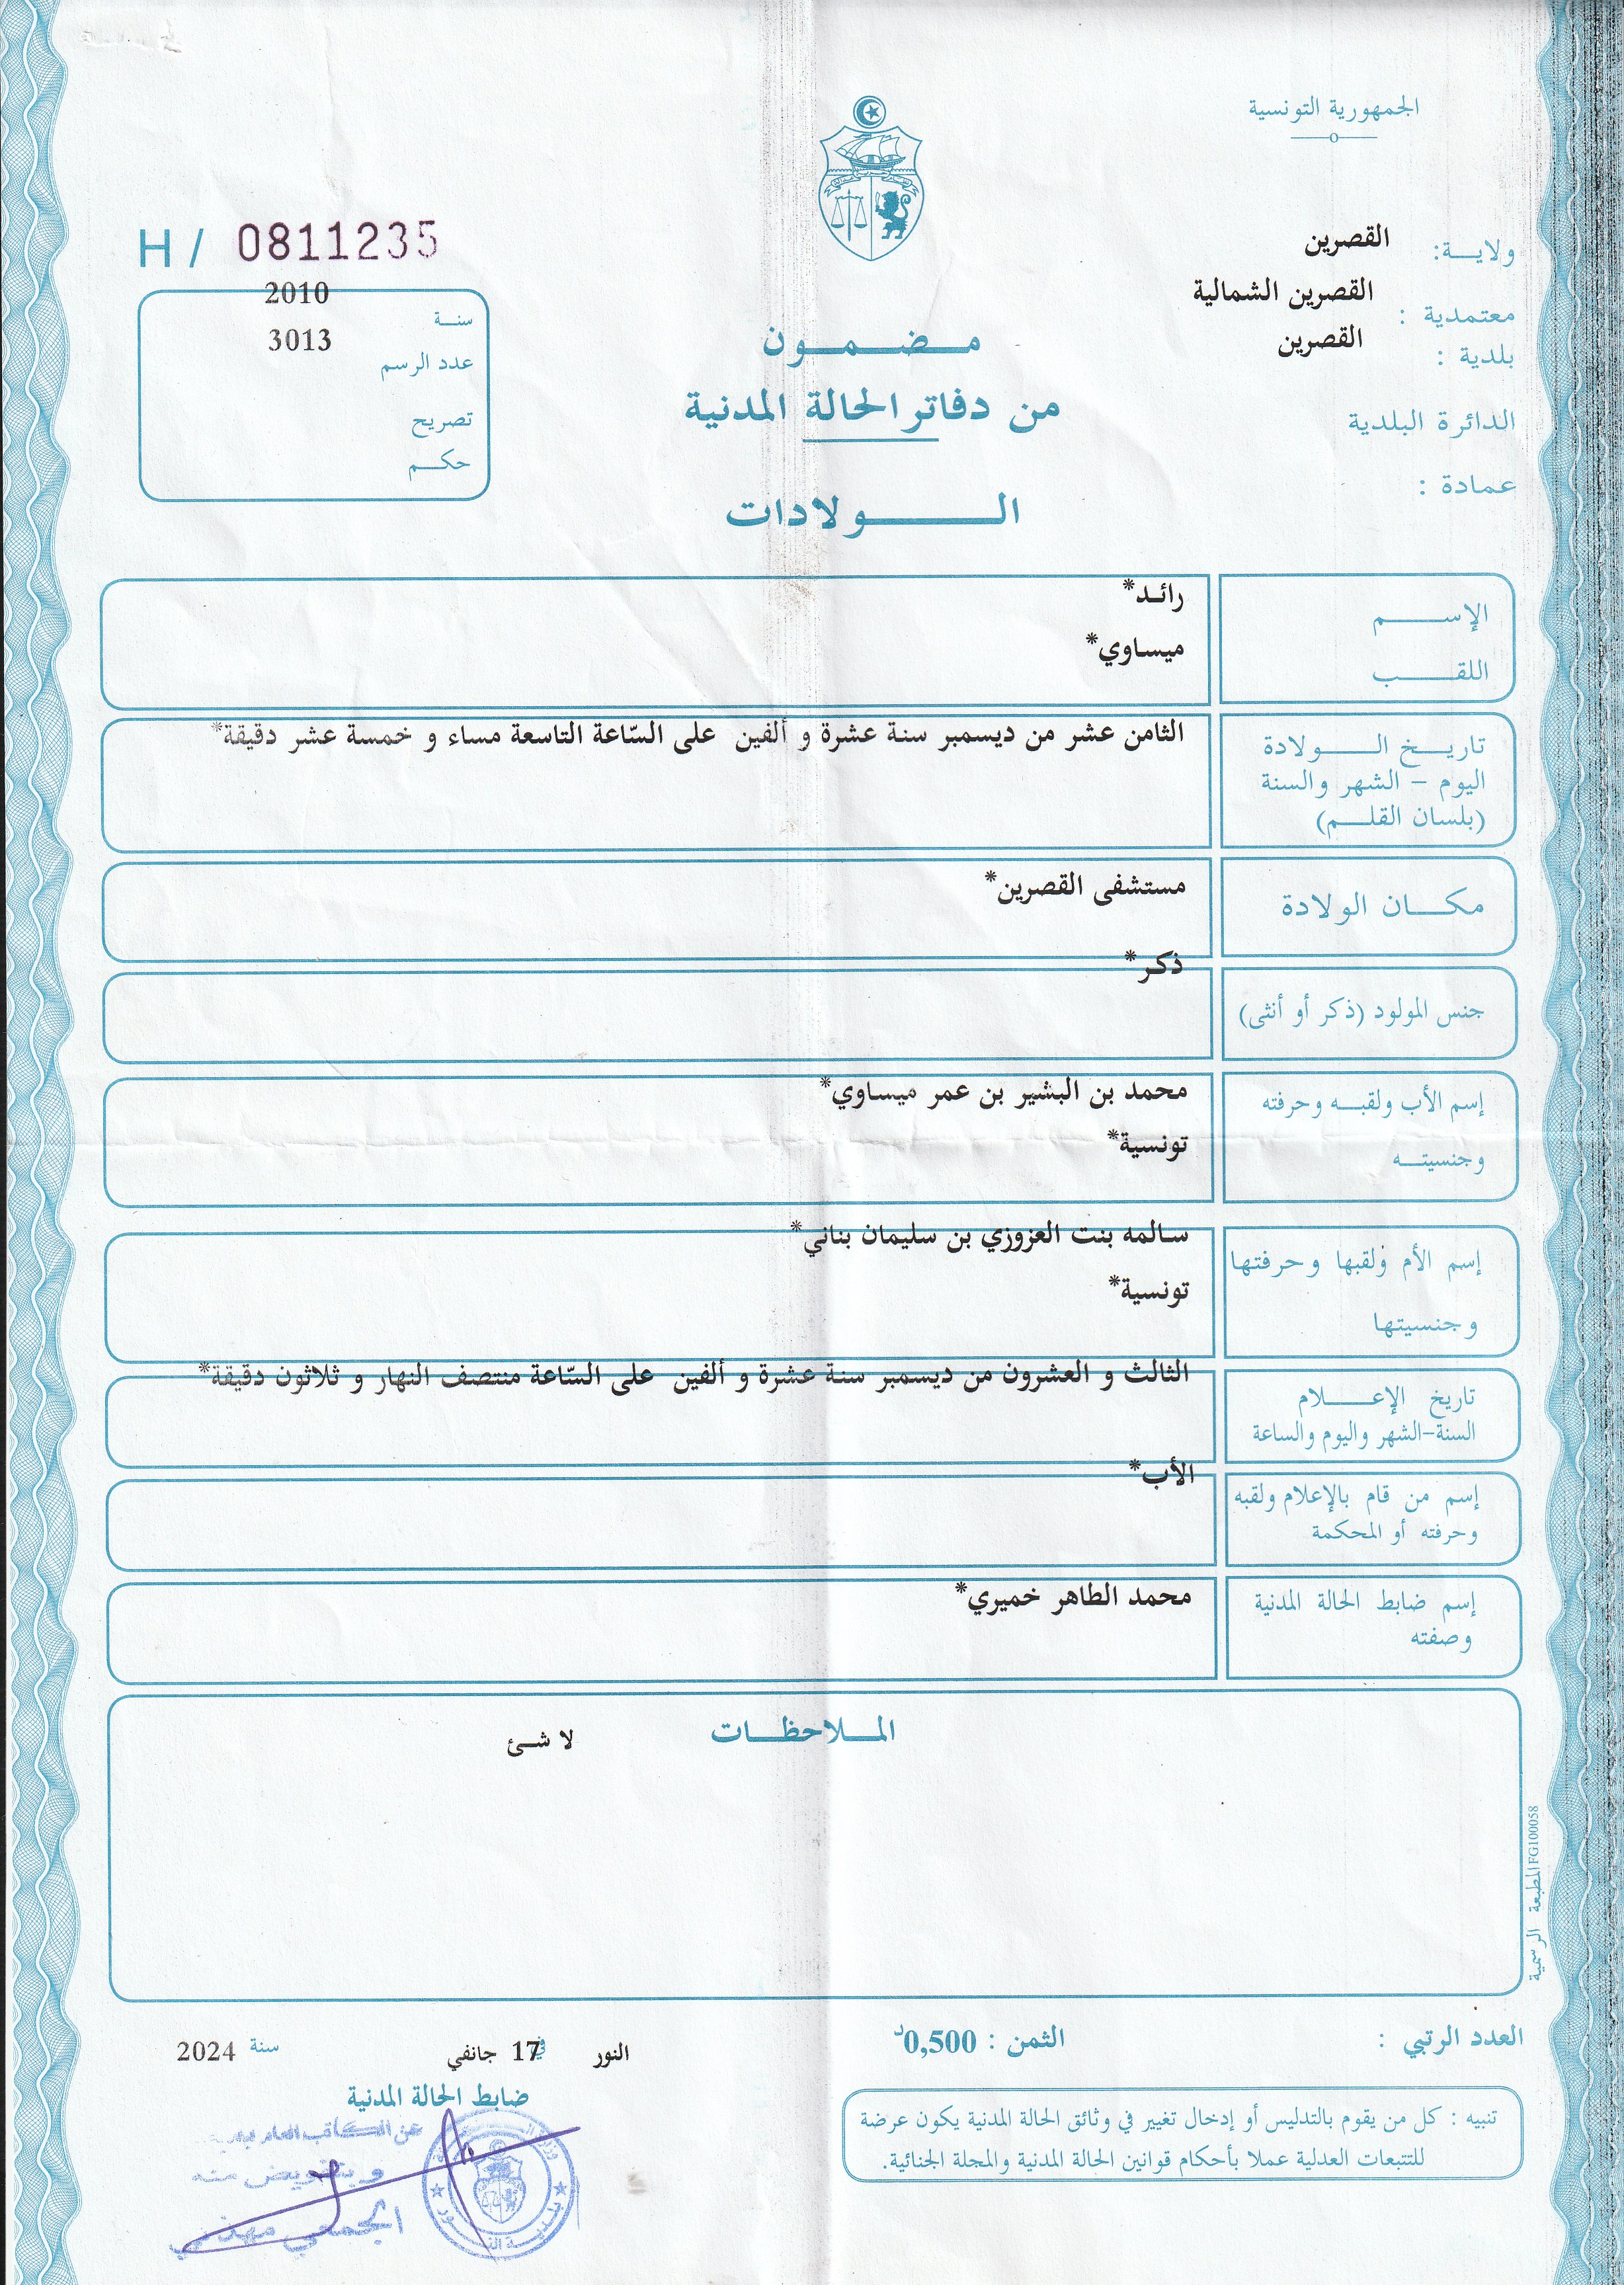 الجمهورية التونسية
ولايـــة: القصرين
معتمدية : القصرين الشمالية
بلدية : القصرين
الدائرة البلدية
عمادة :
H / 0811235
سنـــة 2010
عدد الرسم 3013
تصريح
حكـــم
مـــضـــمـــون
من دفاتر الحالة المدنية
الـــــولادات
الإســـــم رائـد*
اللقـــــب ميساوي*
تاريـــخ الـــــولادة
اليوم – الشهر والسنة
(بلسان القلـــم)
الثامن عشر من ديسمبر سنة عشرة و ألفين على السّاعة التاسعة مساء و خمسة عشر دقيقة*
مكـــان الولادة مستشفى القصرين*
جنس المولود (ذكر أو أنثى) ذكـر*
إسم الأب ولقبـــه وحرفته
وجنسيتـــه
محمد بن البشير بن عمر ميساوي*
تونسية*
إسم الأم ولقبها وحرفتها
وجنسيتها
سـالمه بنت العزوزي بن سليمان بناني*
تونسية*
تاريخ الإعـــــلام
السنة-الشهر واليوم والساعة
الثالث و العشرون من ديسمبر سنة عشرة و ألفين على السّاعة منتصف النهار و ثلاثون دقيقة*
إسم من قام بالإعلام ولقبه
وحرفته أو المحكمة
الأب*
إسم ضابط الحالة المدنية
وصفته
محمد الطاهر خميري*
المـــلاحظـــات
لا شـئ
المطبعة الرسمية FG100058
العدد الرتبي :
الثمن : 0,500د
النور في 17 جانفي سنة 2024
ضابط الحالة المدنية
عن الكاتب العام
وبتفويض منه
تنبيه : كل من يقوم بالتدليس أو إدخال تغيير في وثائق الحالة المدنية يكون عرضة
للتتبعات العدلية عملا بأحكام قوانين الحالة المدنية والمجلة الجنائية.